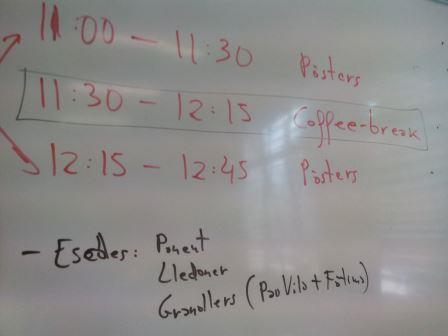 11:00 - 11:30 Pòsters
11:30 - 12:15 Coffee-break
12:15 - 12:45 Pòsters
- Esedes: Ponent
Lledoner
Granollers (Pao Vila + Fàtima)